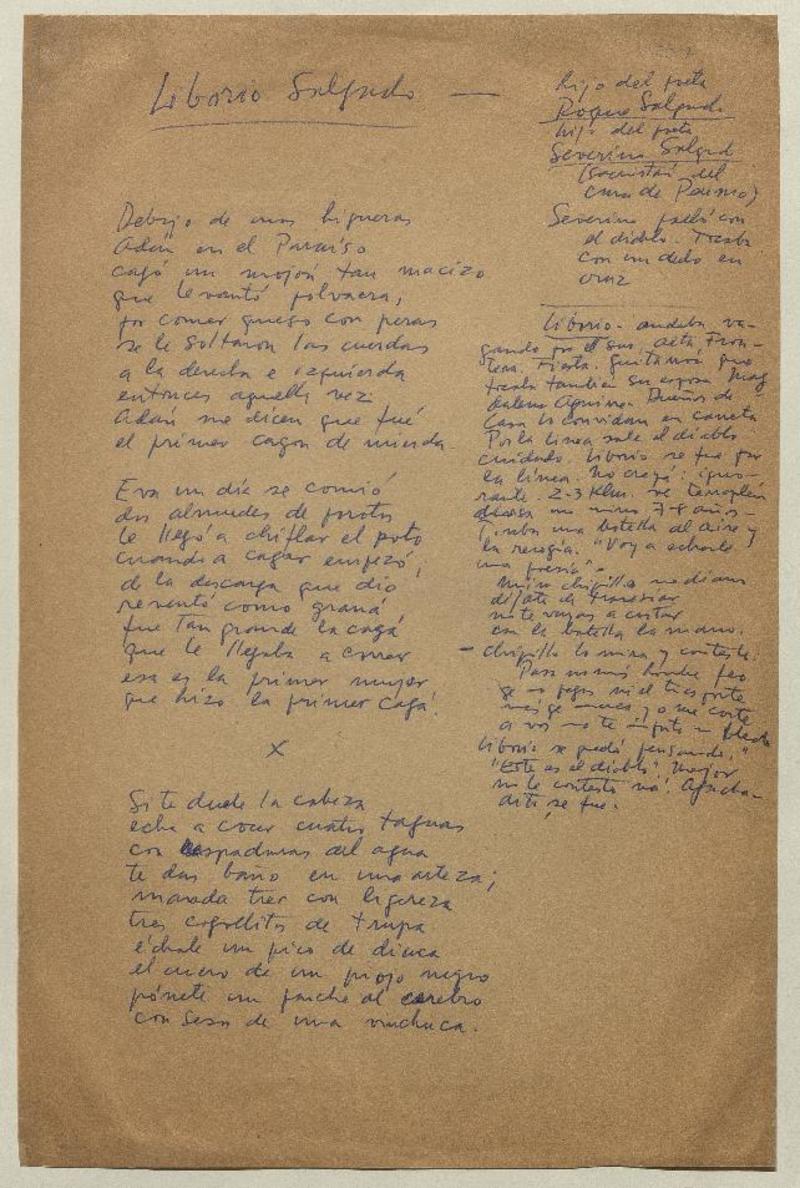 Liborio Salgado —
Debajo de unas higueras
Adán en el Paraíso
cagó un mojón tan macizo
que levantó polvaera,
por comer queso con peras
se le soltaron las cuerdas
a la derecha e izquierda
entonces aquella vez
Adán me dicen que fué
el primer cagon de mierda.
Eva un día se comió
dos almudes de porotos
le llegó a chiflar el poto
cuando a cagar empezó,
de la descarga que dio
reventó como graná
fue tan grande la cagá
que le llegaba a correr
esa es la primer mujer
que hizo la primer cagá.
X
Si te duele la cabeza
echa a cocer cuatro taguas
con las del agua
te das baño en una arteza;
manda trer con ligereza
tres cogollitos de trupa
échale un pico de diuca
el cuero de un piojo negro
pónete un parche al cerebro
con seso de una vinchuca.
hijo del poeta
Roque Salgado
hijo del poeta
Severino Salgad
(sacristán del
cura de Paumo)
Severino peleó con
el diablo.
con un dedo en
cruz
Liborio - andaba va-
gando por el sur. Alta Fron-
tera. Fiesta. Guitarra que
tocaba también su esposa Mag
dalena Aquinea. Dueños de
Casa lo convidan en carreta
Por la línea sale el diablo
cuidado. Liborio se fue por
la línea. No creyó: igno-
rante. 2-3 Klm. se
un niño 7-8 años -
Tiraba una botella al aire y
la recogía. "Voy a echarle
una poesía" -
Mira chiquillo no diam
déjate de travesiar
no te vayas a cortar
con la botella la mano.
- chiquillo lo mira y contesta:
Pasa nomás hombre feo
que no
a vos no te
Liborio se quedó pensando, "
"Este es el diablo". Mejor
no le contesto ná. Agacha-
dito, se fue.